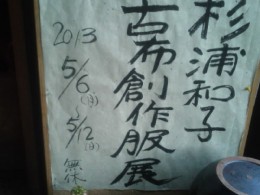 杉浦和子
古布創作服展
2013
5/6
(月)
5/12
(日)
無休